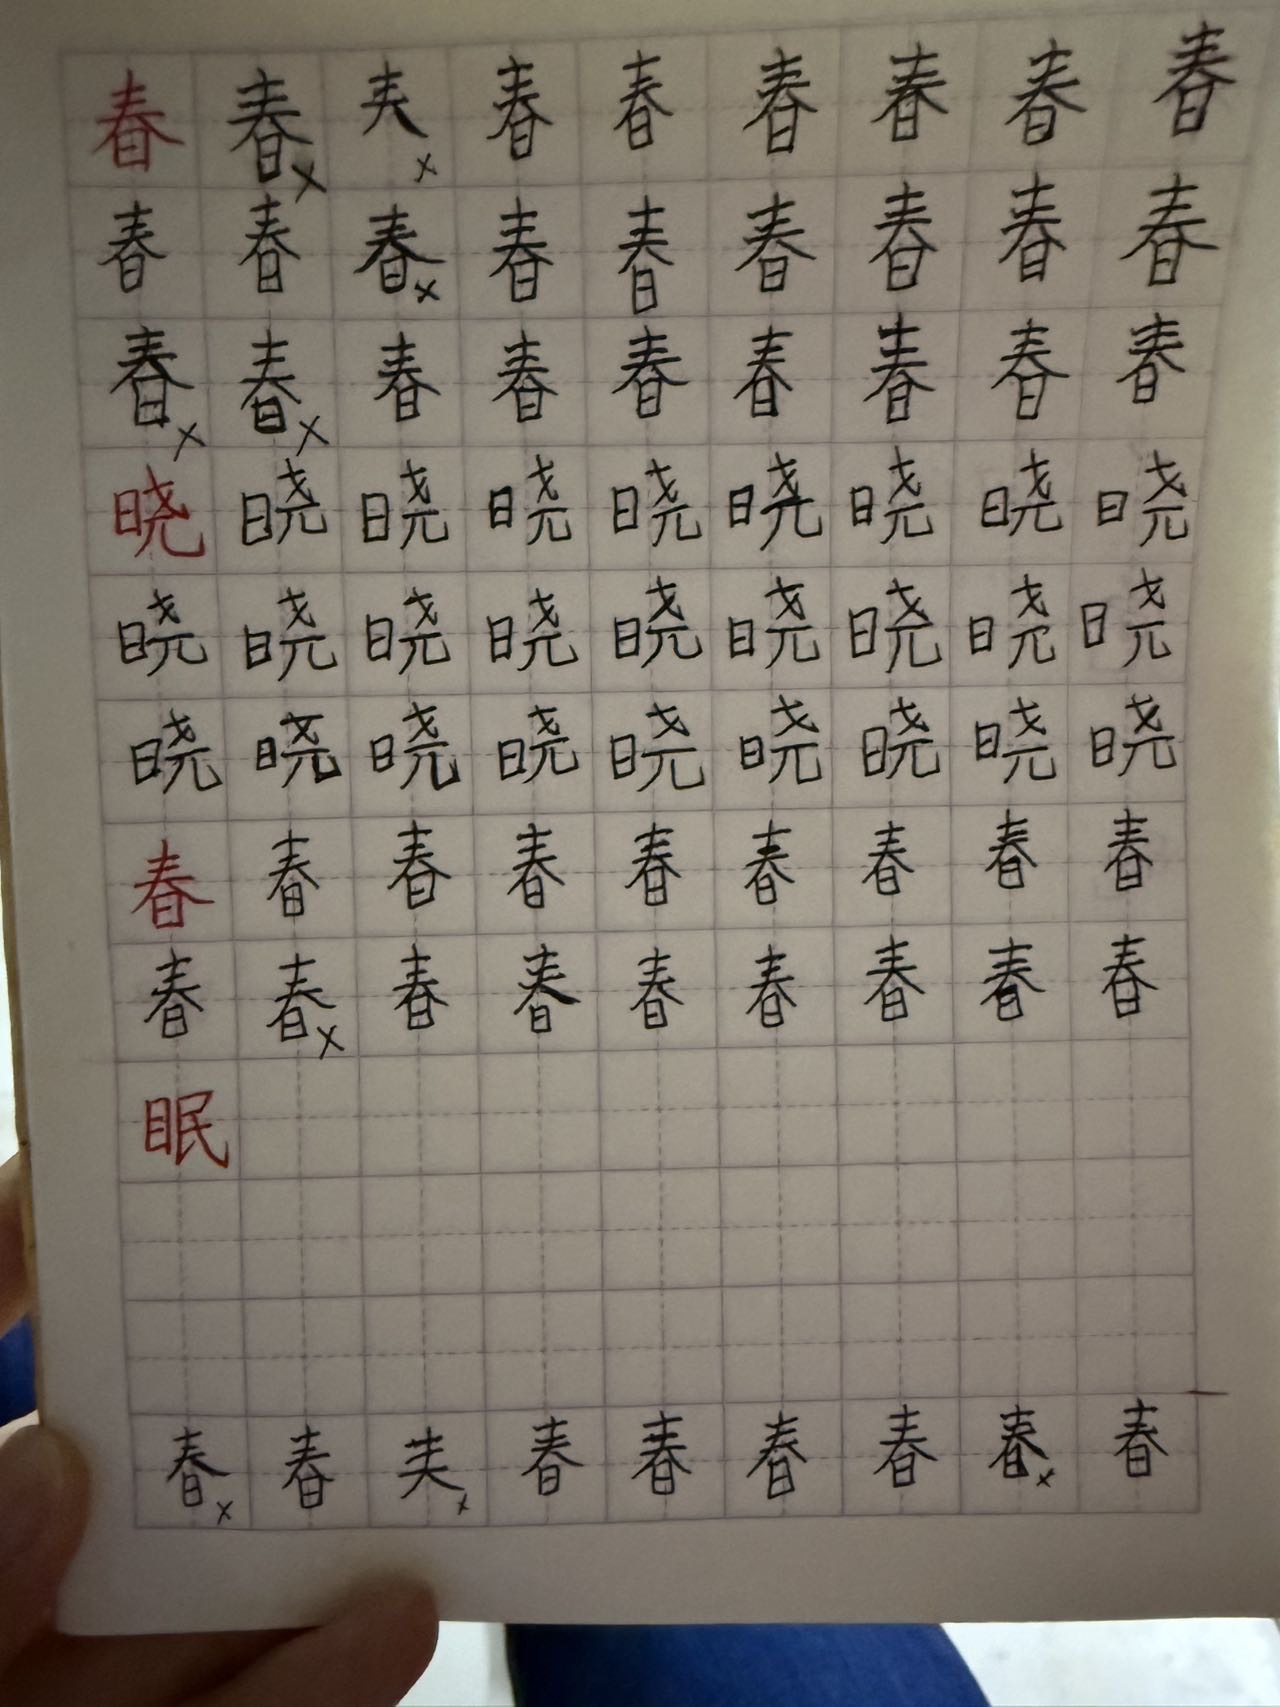 春 春 × 夫 × 春 春 春 春 春 春
春 春 春 × 春 春 春 春 春 春
春 × 春 × 春 春 春 春 春 春 春
晓 晓 晓 晓 晓 晓 晓 晓 晓
晓 晓 晓 晓 晓 晓 晓 晓 晓
晓 晓 晓 晓 晓 晓 晓 晓 晓
春 春 春 春 春 春 春 春 春
春 春 × 春 春 春 春 春 春 春
眠
春 × 春 夫 × 春 春 春 春 春 × 春